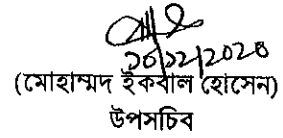 ১০/১২/২০২০
(মোহাম্মদ ইকবাল হোসেন)
উপসচিব